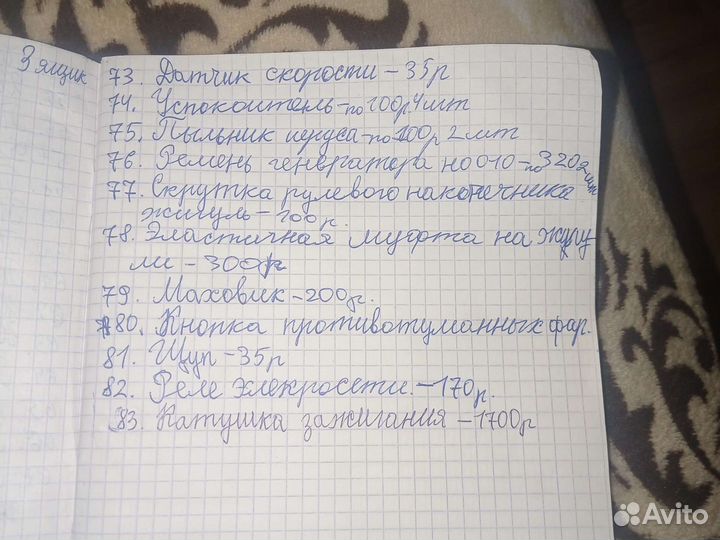 3 ящик
73. Датчик скорости - 35р
74. Успокоитель - по 100р 4шт
75. Пыльник шруса - по 100р 2шт
76. Ремень генератора но010 - по 320 2шт
77. Скрутка рулевого наконечника
жигуль - 100р.
78. Эластичная муфта на жигу
ли - 300р
79. Маховик - 200р.
80. Кнопка противотуманных фар.
81. Щуп - 35р
82. Реле элекросети. - 170р.
83. Катушка зажигания - 1700р
Avito